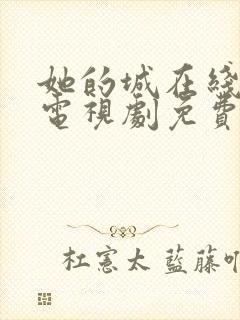 她的城在綫
電視劇免費
杜憲太 藍藤吖